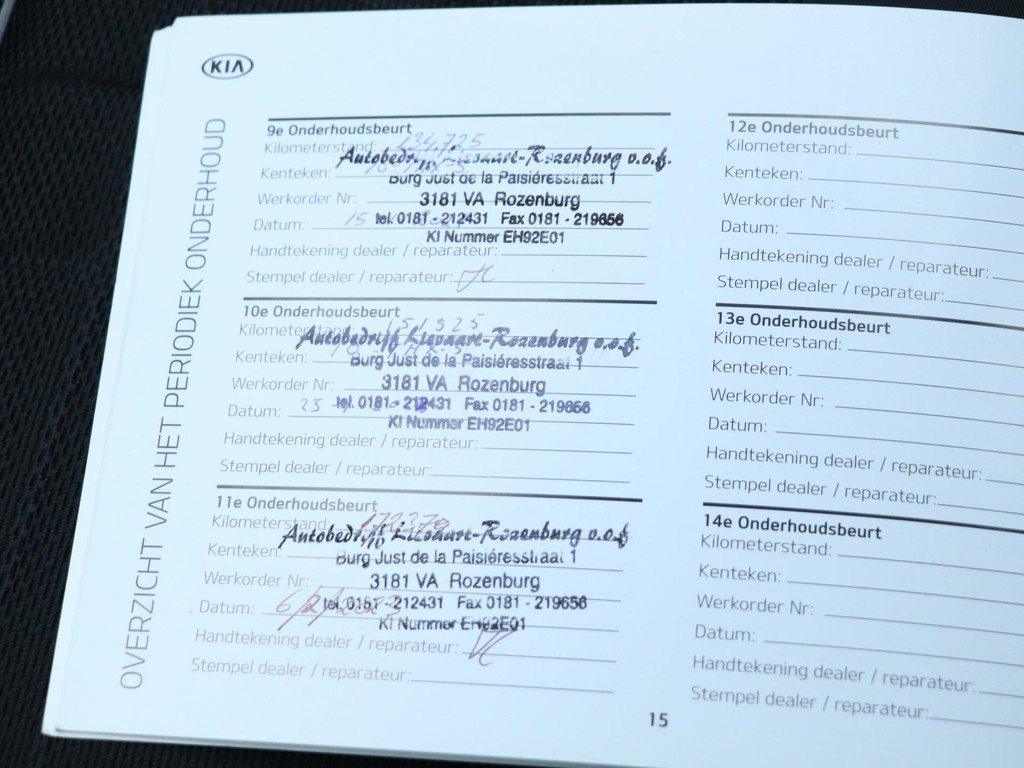 KIA
OVERZICHT VAN HET PERIODIEK ONDERHOUD
9e Onderhoudsbeurt
Kilometerstand: 134.725
Autobedrijf -Rozenburg v.o.f.
Kenteken:
Burg Just de la Paisiéresstraat 1
Werkorder Nr:
3181 VA Rozenburg
Datum: 15
tel. 0181 - 212431 Fax 0181 - 219656
KI Nummer EH92E01
Handtekening dealer / reparateur:
Stempel dealer / reparateur:
10e Onderhoudsbeurt
Kilometerstand: 151325
Autobedrijf -Rozenburg v.o.f.
Kenteken:
Burg Just de la Paisiéresstraat 1
Werkorder Nr:
3181 VA Rozenburg
Datum: 25
tel. 0181 - 212431 Fax 0181 - 219656
KI Nummer EH92E01
Handtekening dealer / reparateur:
Stempel dealer / reparateur:
11e Onderhoudsbeurt
Kilometerstand:
Autobedrijf -Rozenburg v.o.f.
Kenteken:
Burg Just de la Paisiéresstraat 1
Werkorder Nr:
3181 VA Rozenburg
Datum: 6/2/2023
tel. 0181 - 212431 Fax 0181 - 219656
KI Nummer EH92E01
Handtekening dealer / reparateur:
Stempel dealer / reparateur:
12e Onderhoudsbeurt
Kilometerstand:
Kenteken:
Werkorder Nr:
Datum:
Handtekening dealer / reparateur:
Stempel dealer / reparateur:
13e Onderhoudsbeurt
Kilometerstand:
Kenteken:
Werkorder Nr:
Datum:
Handtekening dealer / reparateur:
Stempel dealer / reparateur:
14e Onderhoudsbeurt
Kilometerstand:
Kenteken:
Werkorder Nr:
Datum:
Handtekening dealer / reparateur:
Stempel dealer / reparateur:
15